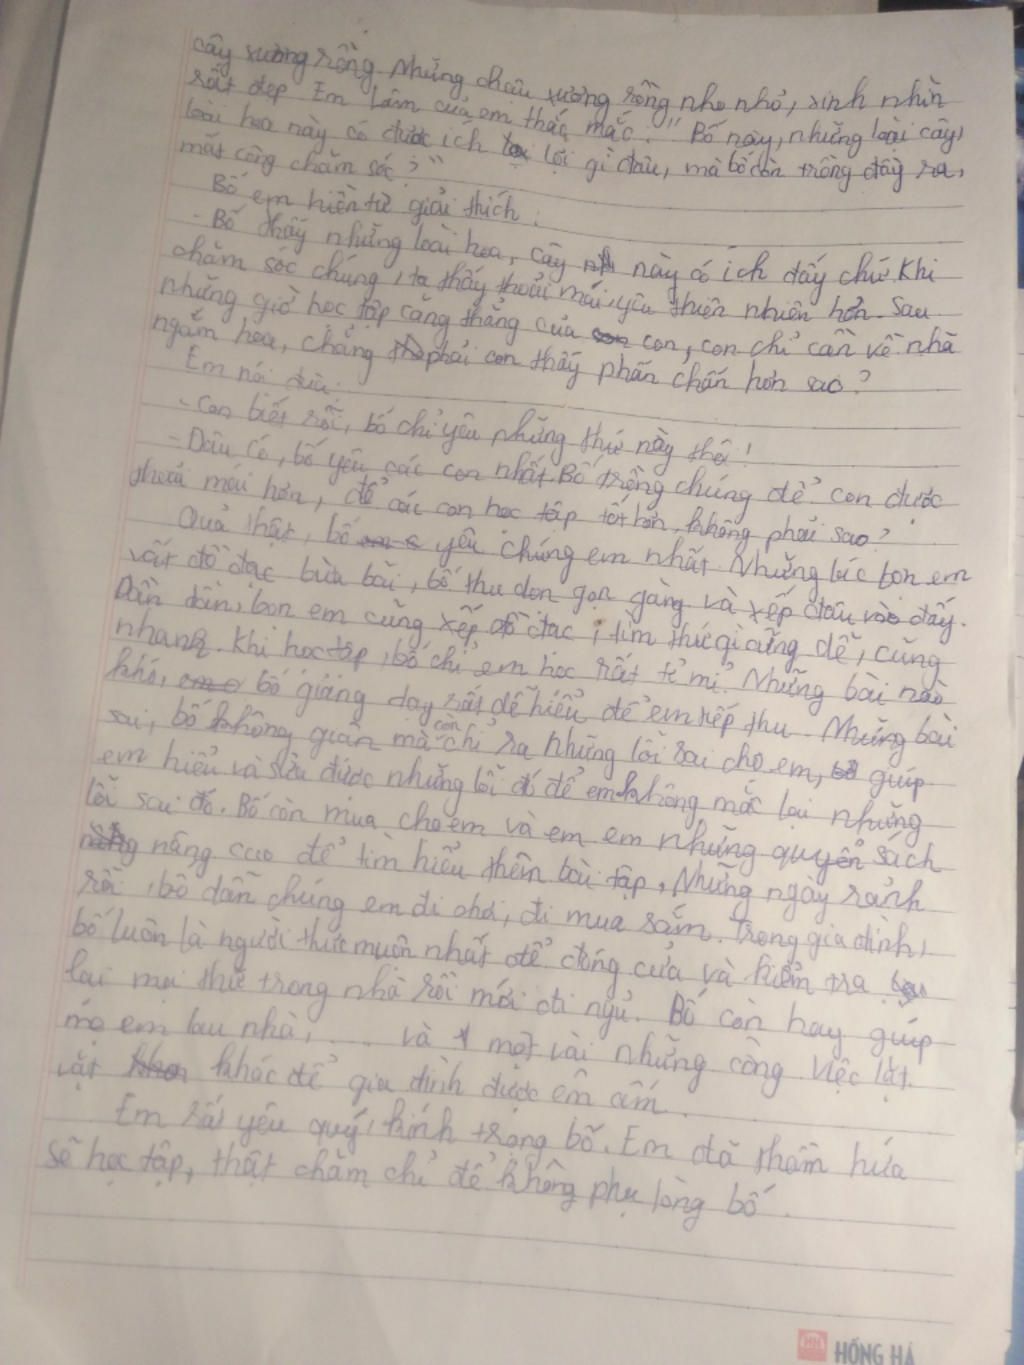 cây xương rồng. Những chậu xương rồng nho nhỏ, xinh nhìn
rất đẹp. Em lắm của em thắc mắc: " Bố này, những loài cây,
loài hoa này có được ích lợi gì đâu, mà bố còn trồng đầy ra,
mất công chăm sóc? "
Bố em hiền từ giải thích:
- Bố thấy những loài hoa, cây này có ích đấy chứ. Khi
chăm sóc chúng, ta thấy thoải mái, yêu thiên nhiên hơn. Sau
những giờ học tập căng thẳng của con, con chỉ cần về nhà
ngắm hoa, chẳng phải con thấy phấn chấn hơn sao?
Em nói đùa:
- Con biết rồi, bố chỉ yêu những thứ này thôi!
- Đâu có, bố yêu các con nhất. Bố trồng chúng để con được
thoải mái hơn, để các con học tập tốt hơn, không phải sao?
Quả thật, bố yêu chúng em nhất. Những lúc bọn em
vất đồ đạc bừa bãi, bố thu dọn gọn gàng và xếp đâu vào đấy.
Dần dần, bọn em cũng xếp đồ đạc, tìm thứ gì cũng dễ, cũng
nhanh. Khi học tập, bố chỉ em học rất tỉ mỉ. Những bài nào
khó, bố giảng dạy rất dễ hiểu để em tiếp thu. Những bài
sai, bố không giận mà còn chỉ ra những lỗi sai cho em, giúp
em hiểu và sửa được những lỗi đó để em không mắc lại những
lỗi sai đó. Bố còn mua cho em và em em những quyển sách
nâng cao để tìm hiểu thêm bài tập, Những ngày rảnh
rỗi, bố dẫn chúng em đi chơi, đi mua sắm. Trong gia đình,
bố luôn là người thức muộn nhất để đóng cửa và kiểm tra
lại mọi thứ trong nhà rồi mới đi ngủ. Bố còn hay giúp
mẹ em lau nhà, .... và một vài những công việc lặt
vặt khác để gia đình được êm ấm.
Em rất yêu quý, kính trọng bố. Em đã thầm hứa
sẽ học tập, thật chăm chỉ để không phụ lòng bố.
HH HỒNG HÀ